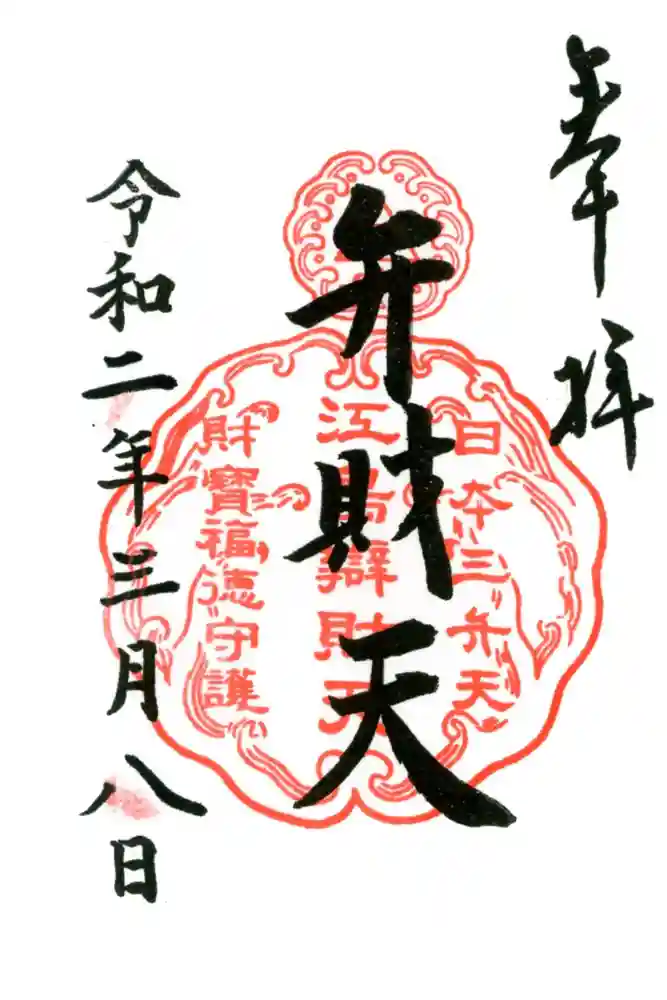 奉拝
日本三弁天
江島辯財天
弁財天
財寶福徳守護
令和二年三月八日